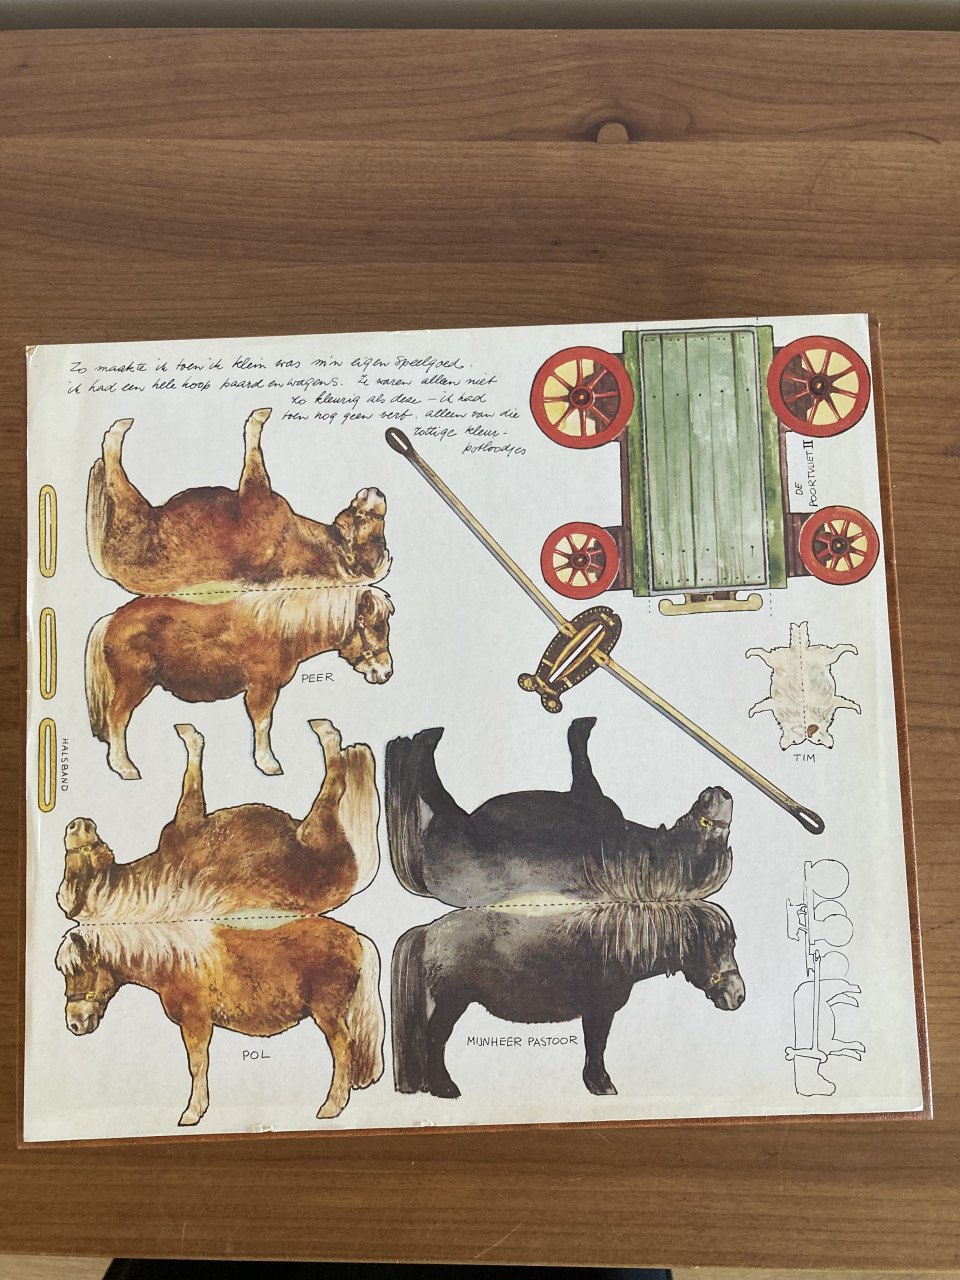 Zo maakte ik toen ik klein was m'n eigen speelgoed.
ik had een hele hoop paard en wagens. Ze waren alleen niet
zo kleurig als deze – ik had
toen nog geen verf. alleen van die
rottige kleur-
potloodjes
DE
POORTVLIET II
PEER
HALSBAND
TIM
POL
MIJNHEER PASTOOR